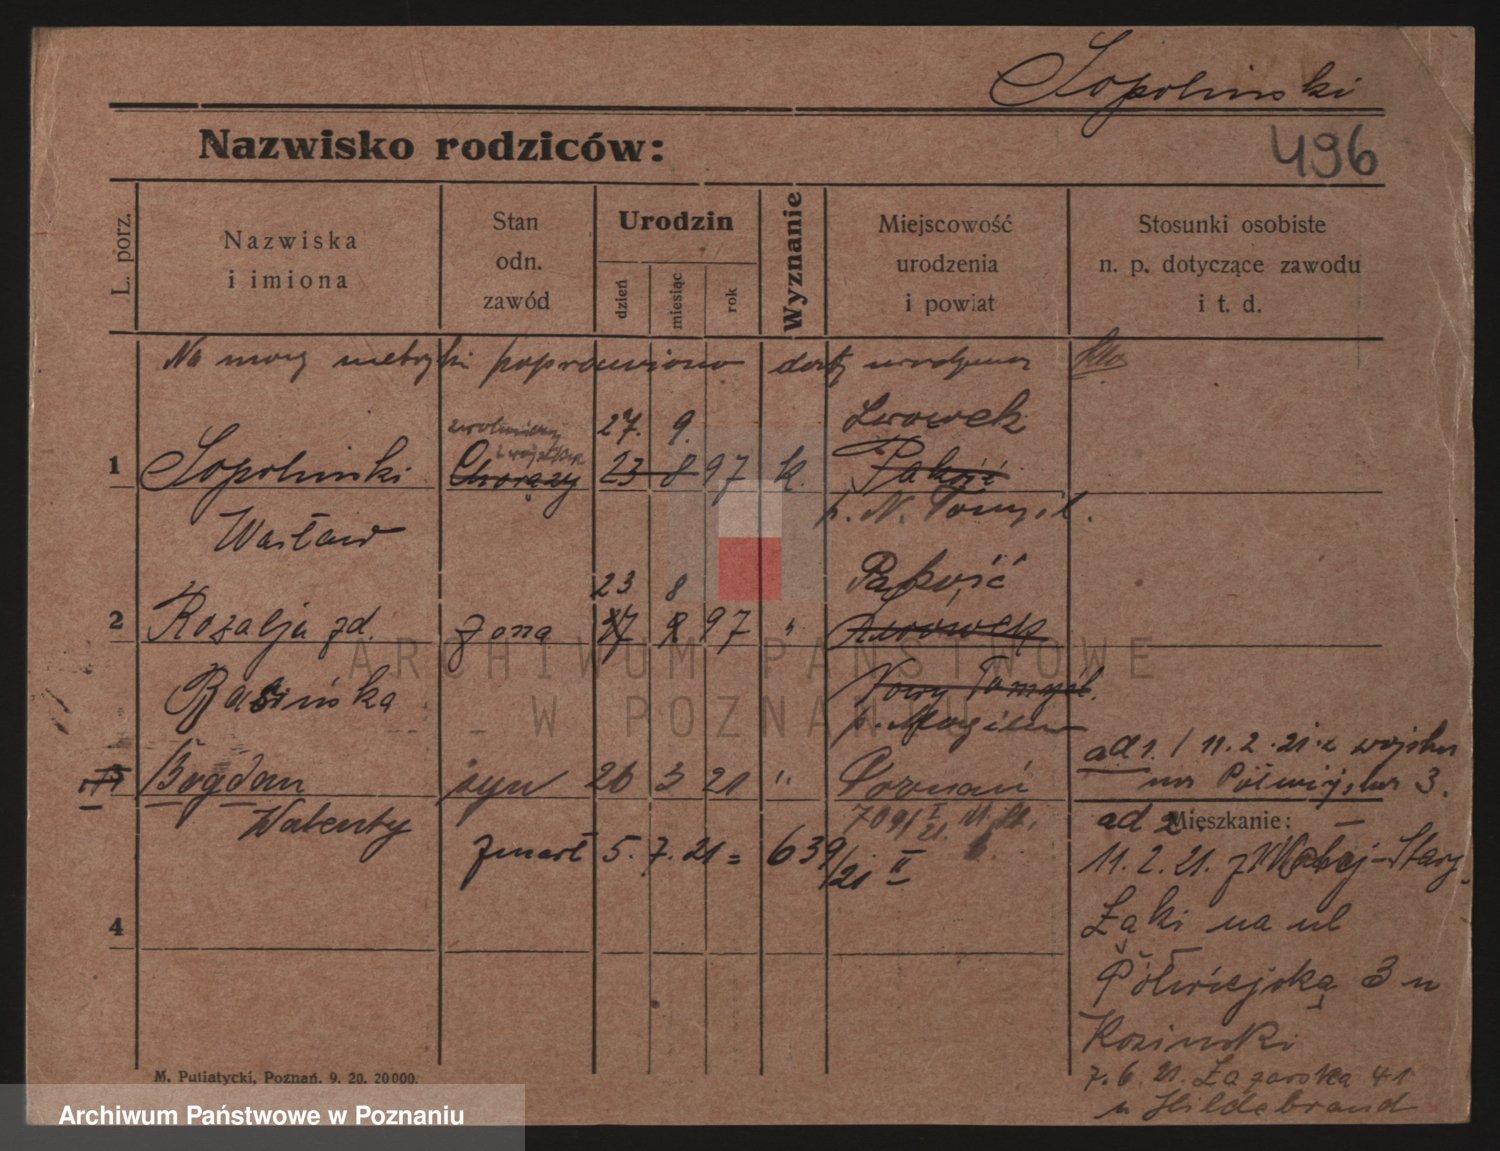 Sopolinski
Nazwisko rodziców:
496
L. porz.
Nazwiska
i imiona
Stan
odn.
zawód
Urodzin
dzień
miesiąc
rok
Wyznanie
Miejscowość
urodzenia
i powiat
Stosunki osobiste
n. p. dotyczące zawodu
i t. d.
Na mocy metryki poprawiono datę urodzenia
27. 9. Lwowek
1 Sopolinski Chorąży 23 8 97 k. Pakość
Wacław p. N. Tomyśl.
23 8 Pakość
2 Rozalja zd. żona 17 9 97 " Lwowek
Basińska Nowy Tomyśl.
p. Mogilno
3 Bogdan syn 26 3 21 " Poznań
Walenty
zmarł 5. 7. 21 = 639/21 II
4
ad 1. / 11. 2. 21. z wojska
na Półwiejska 3.
ad 2 Mieszkanie:
11. 2. 21. z
Łąki na ul
Półwiejską 3 u
Kozinski
7. 6. 21. Łazarska 41
u Hildebrand
M. Putiatycki, Poznań. 9. 20. 20000.
ARCHIWUM PAŃSTWOWE
W POZNANIU
Archiwum Państwowe w Poznaniu